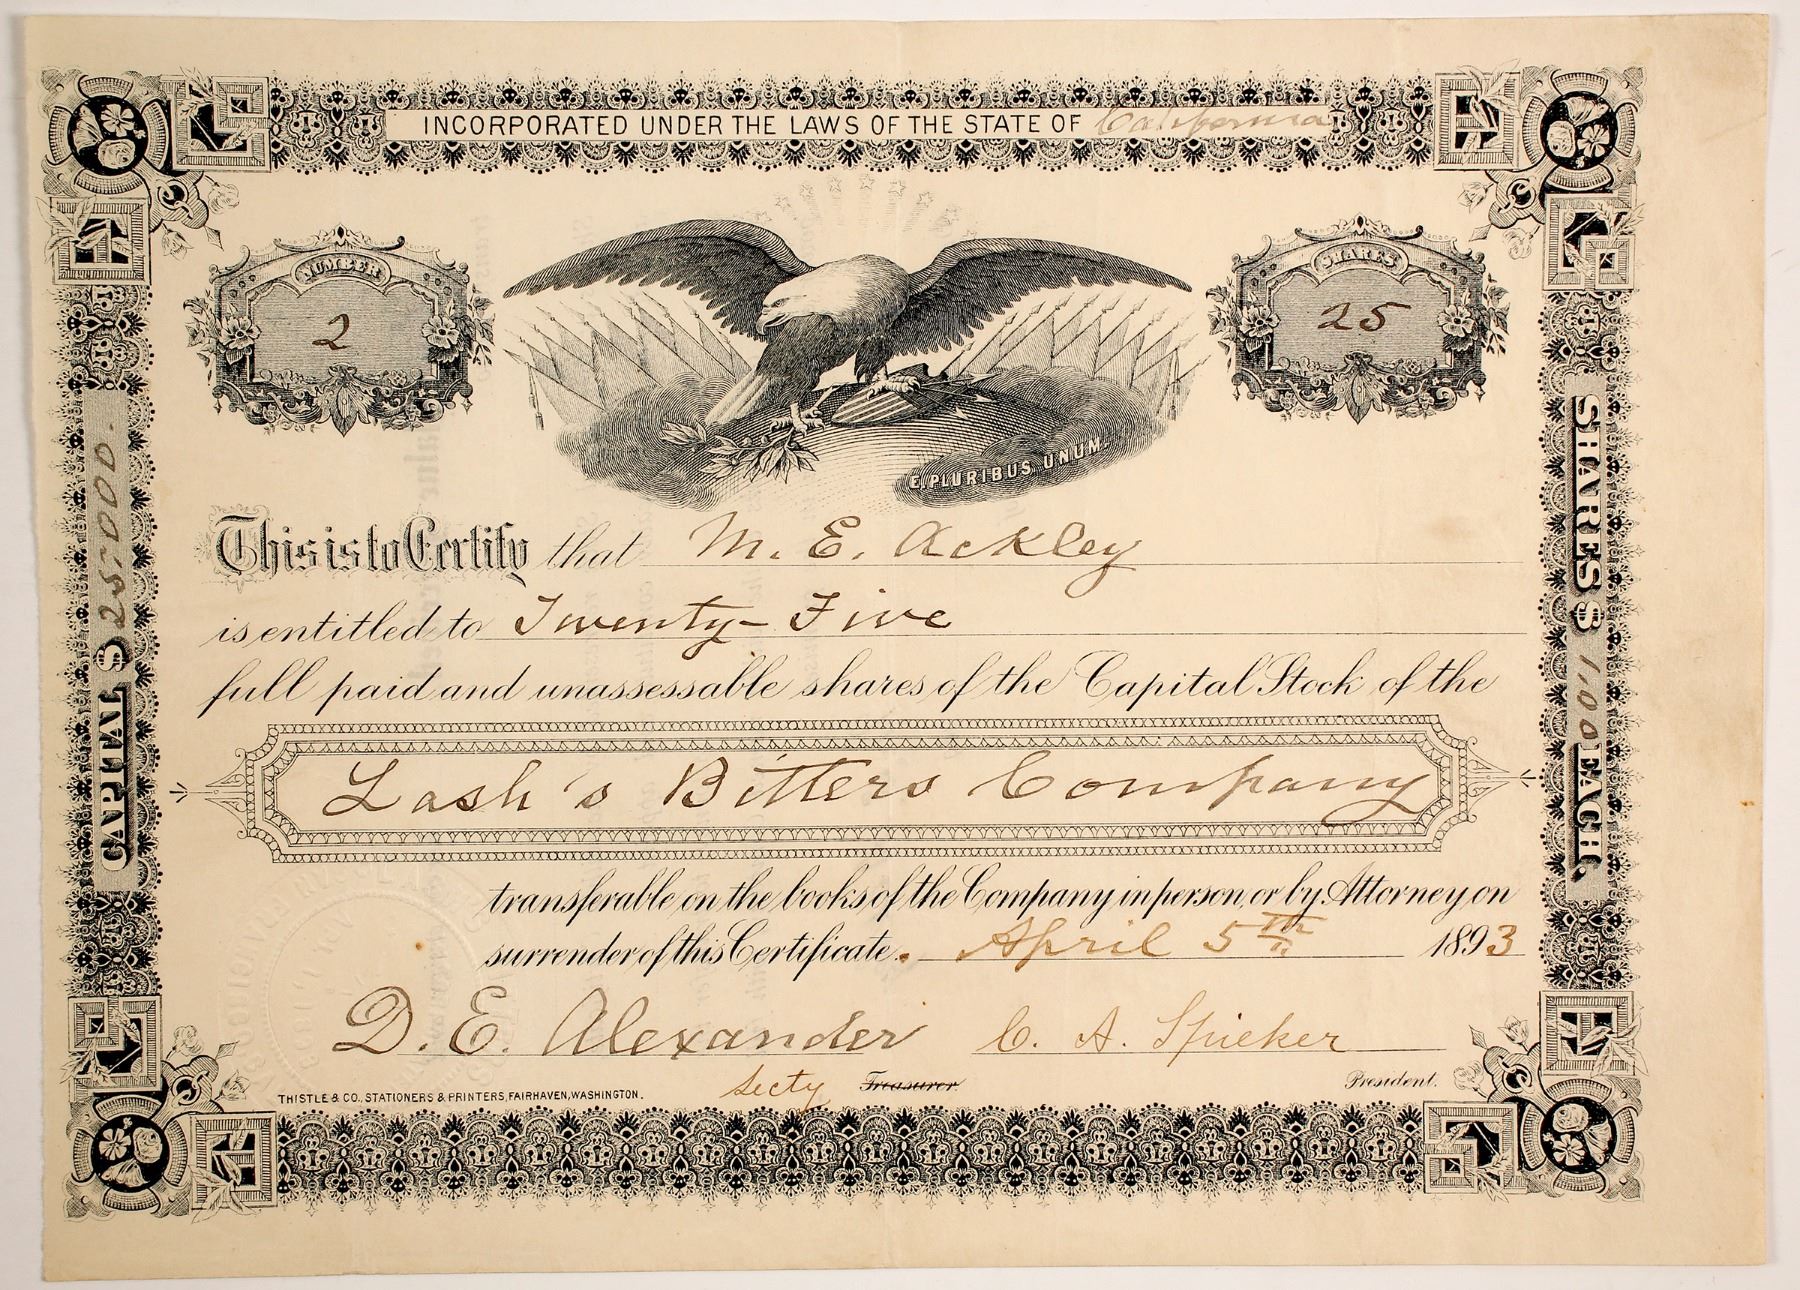 INCORPORATED UNDER THE LAWS OF THE STATE OF California
NUMBER
2
SHARES
25
E PLURIBUS UNUM.
CAPITAL $ 25.000.
SHARES $ 1.00 EACH.
This is to Certify that M. E. Ackley
is entitled to Twenty-Five
full paid and unassessable shares of the Capital Stock of the
Lash's Bitters Company
transferable on the books of the Company in person or by Attorney on
surrender of this Certificate. April 5th 1893
D. E. Alexander C. A. Spieker
Secty Treasurer. President.
THISTLE & CO., STATIONERS & PRINTERS, FAIRHAVEN, WASHINGTON.